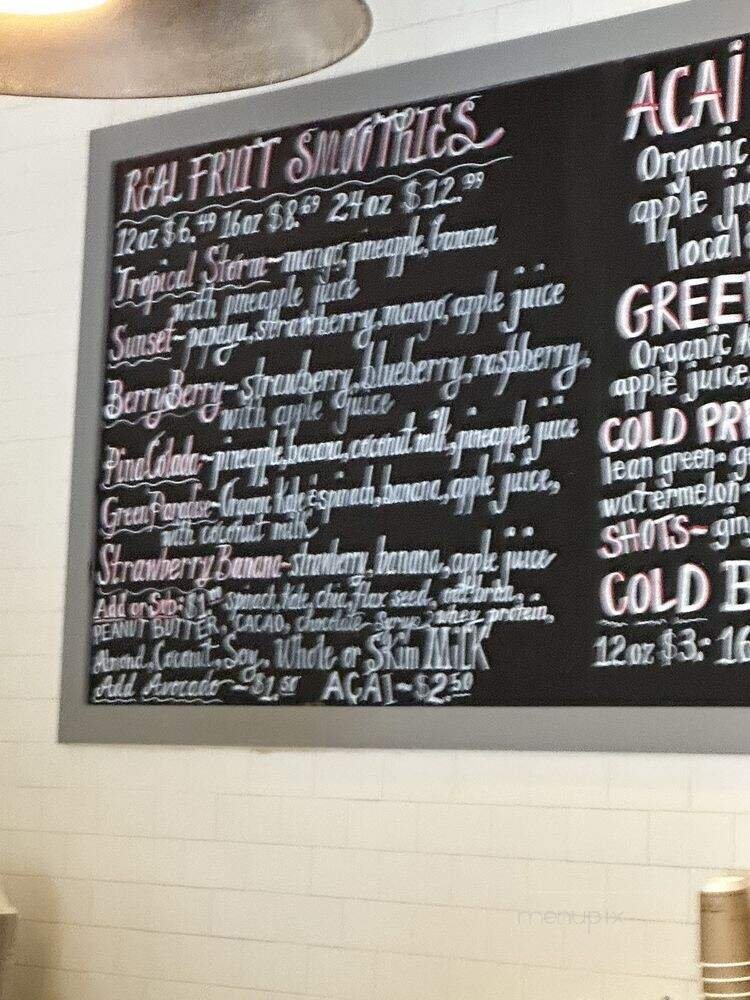 REAL FRUIT SMOOTHIES
12oz $6.49 16oz $8.69 24oz $12.99
Tropical Storm~mango, pineapple, banana
with pineapple juice
Sunset~papaya, strawberry, mango, apple juice
BerryBerry~strawberry, blueberry, raspberry,
with apple juice
Pina Colada~pineapple, banana, coconut milk, pineapple juice
Green Paradise~Organic Kale & spinach, banana, apple juice,
with coconut milk
Strawberry Banana~strawberry, banana, apple juice
Add or Sub: spinach, kale, chia, flax seed,
PEANUT BUTTER, CACAO, chocolate whey protein,
Almond, Coconut, Soy, Whole or Skim MilK
Add Avocado~ AÇAI~$2.50
AÇAÍ
Organic
apple
local
GREE
Organic
apple juice
COLD PR
lean green
watermelon
SHOTS~ gin
COLD B
12oz $3.- 16
menupix